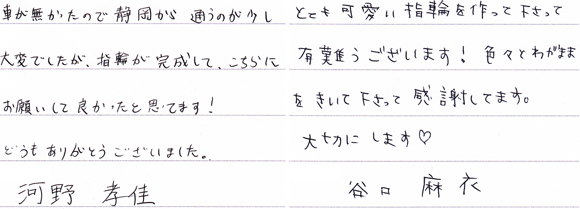 車が無かったので静岡から通うのが少し
大変でしたが、指輪が完成して、こちらに
お願いして良かったと思てます！
どうもありがとうございました。
河野 孝佳
とても可愛い指輪を作って下さって
有難うございます！色々とわがまま
をきいて下さって感謝してます。
大切にします♡
谷口 麻衣